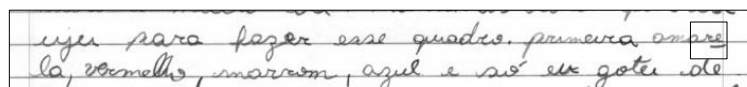 usei para fazer esse quadro. primeira amare
la, vermelho, marrom, azul e só eu gotei de